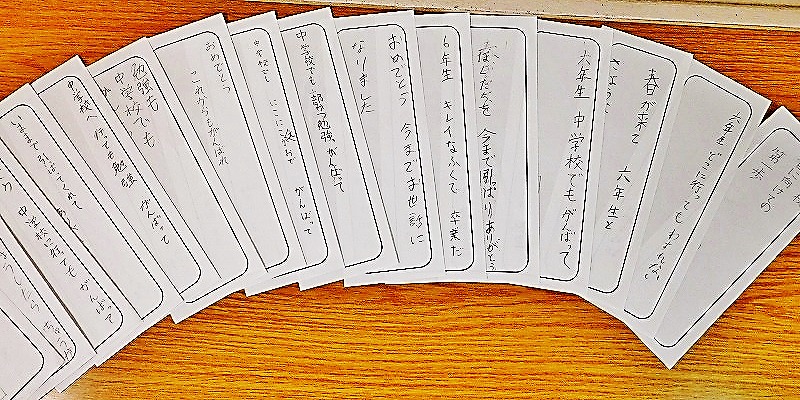 第一歩
六年生 どこに行っても わすれない
春が来て 六年生と
さようなら
六年生 中学校でも がんばって
今まで引っぱり ありがとう
6年生 キレイなふくで 卒業だ
おめでとう 今までお世話に
なりました
中学校でも 部活勉強 がんばって
中学校でも にこにこ がんばって
おめでとう これからもがんばれ
勉強も
中学校でも
中学校へ 行っても勉強 がんばって
いままで 引っぱてくれて
中学校に行ても がんばって